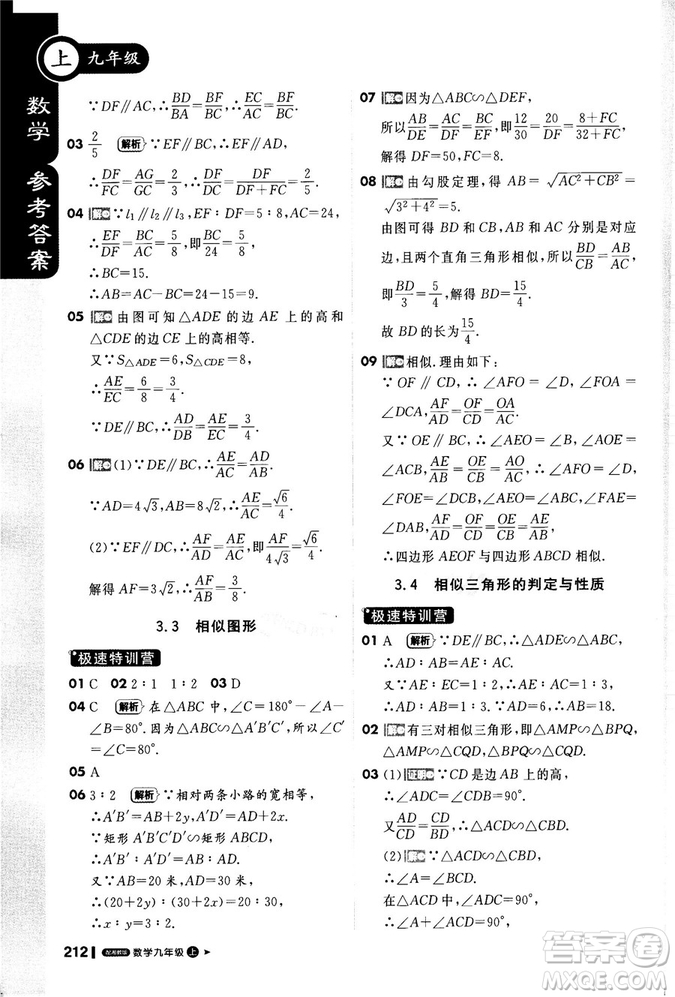 上 九年级
数学 参考答案
∵DF∥AC,∴BD/BA=BF/BC,∴EC/AC=BF/BC.
03 2/5 解析 ∵EF∥BC,∴EF∥AD,
∴DF/FC=AG/GC=2/3,∴DF/DC=DF/(DF+FC)=2/5.
04 解 ∵l₁∥l₂∥l₃,EF:DF=5:8,AC=24,
∴EF/DF=BC/AC=5/8,即BC/24=5/8,
∴BC=15.
∴AB=AC-BC=24-15=9.
05 解 由图可知△ADE的边AE上的高和
△CDE的边CE上的高相等.
又∵S△ADE=6,S△CDE=8,
∴AE/EC=6/8=3/4.
∵DE∥BC,∴AD/DB=AE/EC=3/4.
06 解 (1)∵DE∥BC,∴AE/AC=AD/AB.
∵AD=4√3,AB=8√2,∴AE/AC=√6/4.
(2)∵EF∥BC,∴AF/AD=AE/AC,即AF/4√3=√6/4.
解得AF=3√2,∴AF/AB=3/8.
3.3 相似图形
极速特训营
01 C 02 2:1 1:2 03 D
04 C 解析 在△ABC中,∠C=180°-∠A-
∠B=80°.因为△ABC∽△A′B′C′,所以∠C′
=∠C=80°.
05 A
06 3:2 解析 ∵相对两条小路的宽相等,
∴A′B′=AB+2y,A′D′=AD+2x.
∵矩形A′B′C′D′∽矩形ABCD,
∴A′B′:A′D′=AB:AD.
又∵AB=20米,AD=30米,
∴(20+2y):(30+2x)=20:30.
∴x:y=3:2.
07 解 因为△ABC∽△DEF,
所以AB/DE=BC/DF=AC/EF,即12/30=20/DF=(8+FC)/(32+FC).
解得DF=50,FC=8.
08 解 由勾股定理,得AB=√(AC²+CB²)=
√(3²+4²)=5.
由图可得BD和CB,AB和AC分别是对应
边,且两个直角三角形相似,所以BD/CB=AB/AC,
即BD/3=5/4,解得BD=15/4.
故BD的长为15/4.
09 解 相似.理由如下:
∵OF∥CD,∴∠AFO=∠ADC,∠AOF=
∠DCA,AF/AD=OF/CD=OA/AC.
又∵OE∥BC,∴∠AEO=∠ABC,∠AOE=
∠ACB,AE/AB=OE/BC=AO/AC.∴∠FOE=∠DCB,
∠FOE=∠DCB,∠AEO=∠ABC,∠FAE=
∠DAB,AF/AD=OF/CD=OE/BC=AE/AB.
∴四边形AEOF与四边形ABCD相似.
3.4 相似三角形的判定与性质
极速特训营
01 A 解析 ∵DE∥BC,∴△ADE∽△ABC,
∴AD:AB=AE:AC.
又∵AE:EC=1:2,∴AE:AC=1:3.
∴AD:AB=1:3.∴AB=3AD=18.
02 解 有三对相似三角形,即△AMP∽△BPQ,
△AMP∽△CQD,△BPQ∽△CQD.
03 (1)证明 ∵CD是边AB上的高,
∴∠ADC=∠CDB=90°.
又∵AD/CD=CD/BD,∴△ACD∽△CBD.
(2)解 ∵△ACD∽△CBD,
∴∠A=∠BCD.
在△ACD中,∵∠ADC=90°,
∴∠A+∠ACD=90°.
212 配湘教版 数学九年级 上
作业精灵